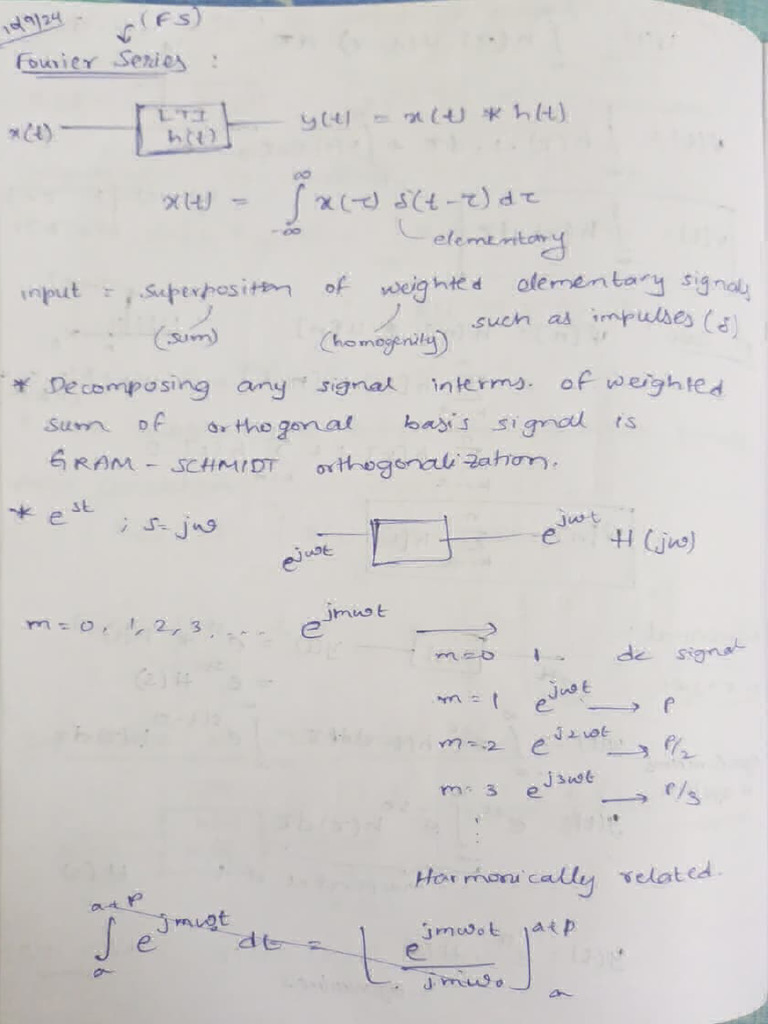 (FS)
Fourier Series :
x(t) LTI h(t) y(t) = x(t) * h(t)
x(t) = ∫_{-∞}^{∞} x(τ) δ(t-τ) dτ
elementary
input = superposition of weighted elementary signals
(sum) (homogenity) such as impulses (δ)
* Decomposing any signal interms. of weighted
sum of orthogonal basis signal is
GRAM - SCHMIDT orthogonalization.
* e^{st} ; s = jω e^{jωt} e^{jωt} H(jω)
m = 0, 1, 2, 3, .... e^{jmωt} →
m=0 1. dc signal
m = 1 e^{jωt} → P
m=2 e^{j2ωt} → P/2
m= 3 e^{j3ωt} → P/3
Harmonically related.
∫_{a}^{a+P} e^{jmω₀t} dt = [e^{jmω₀t} / jmω₀]_{a}^{a+P}